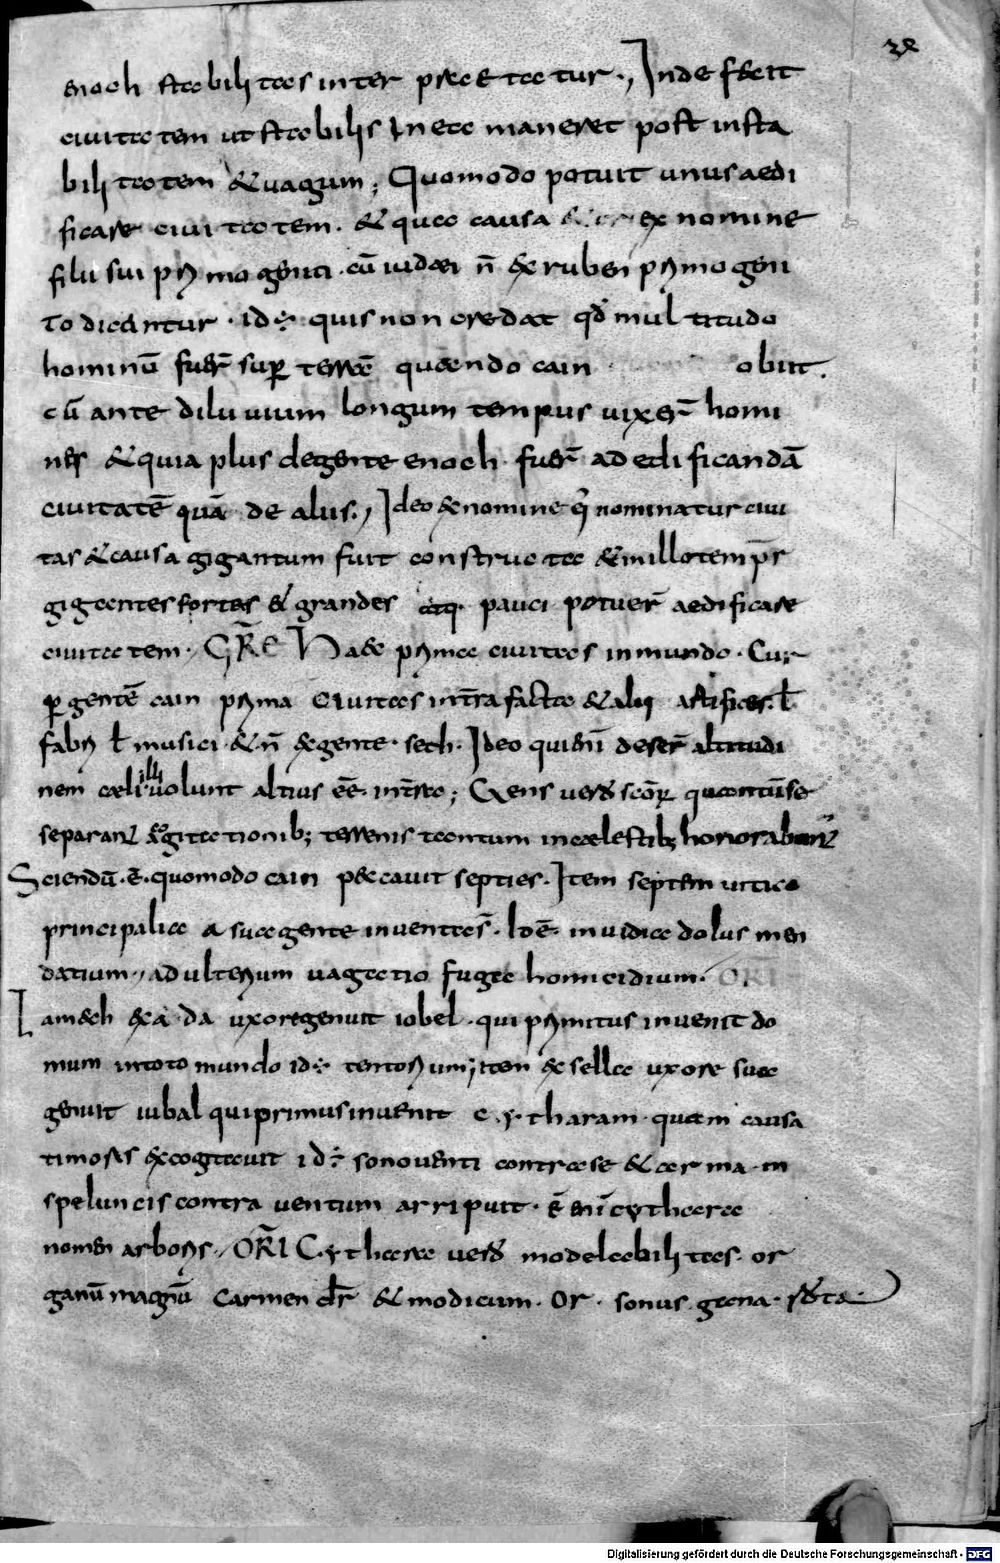 enoch stabilitas interpraetatur·, Inde fecit
civitatem ut stabilis in ea maneret post insta
bilitatem & vagum; Quomodo potuit unus aedi
ficare civitatem· & quae causa ex nomine
filii sui primogeniti· cū iudaei n̄ ex ruben primogen
to dicantur· id÷ quis non credat qđ multitudo
hominū fuer̄ sup terrā quando cain obiit.
cū ante diluvium longum tempus vixer̄ homi
nes & quia plus de gente enoch· fuer̄ ad edificandā
civitatē quā de aliis·, Ideo & nomine ei nominatur civi
tas & causa gigantum fuit constructa & in illo temp̄r
gigantes fortes & grandes atq· pauci potuer̄ aedificare
civitatem· GR̄E Haec prima civitas in mundo· Cur
p gentē cain prima civitas in terra facta & alii artifices· ł
fabri ł musici· & n̄ ex gente· seth· Ideo qui in deser̄ altitudi
nem caeli illi volunt altius eē· in terra; Gens vero scōr quantū se
separant cogitationib; terrenis tantum in caelestib; honorabunt
Sciendū·ē· quomodo cain peccavit septies· Item septem vitia
principalia a sua gente inventas̄· Id ē· invidia dolus men
dacium·, adulterium vagatio fuga homicidium· ORI
Lamech ex a·da uxore genuit iobel· qui primitus invenit do
mum in toto mundo id÷ tentorium; item ex sella uxore sua
genuit iubal qui primus invenit cytharam· quam causa
timoris excogitavit id÷ sono venti contra se & arma· in
speluncis contra ventum arripuit· ē enī cythara
nomen arboris·, ORI Cythara vero modelabilitas· or
ganū magnū carmen dr̄ & modicum· Or· sonus· gana·